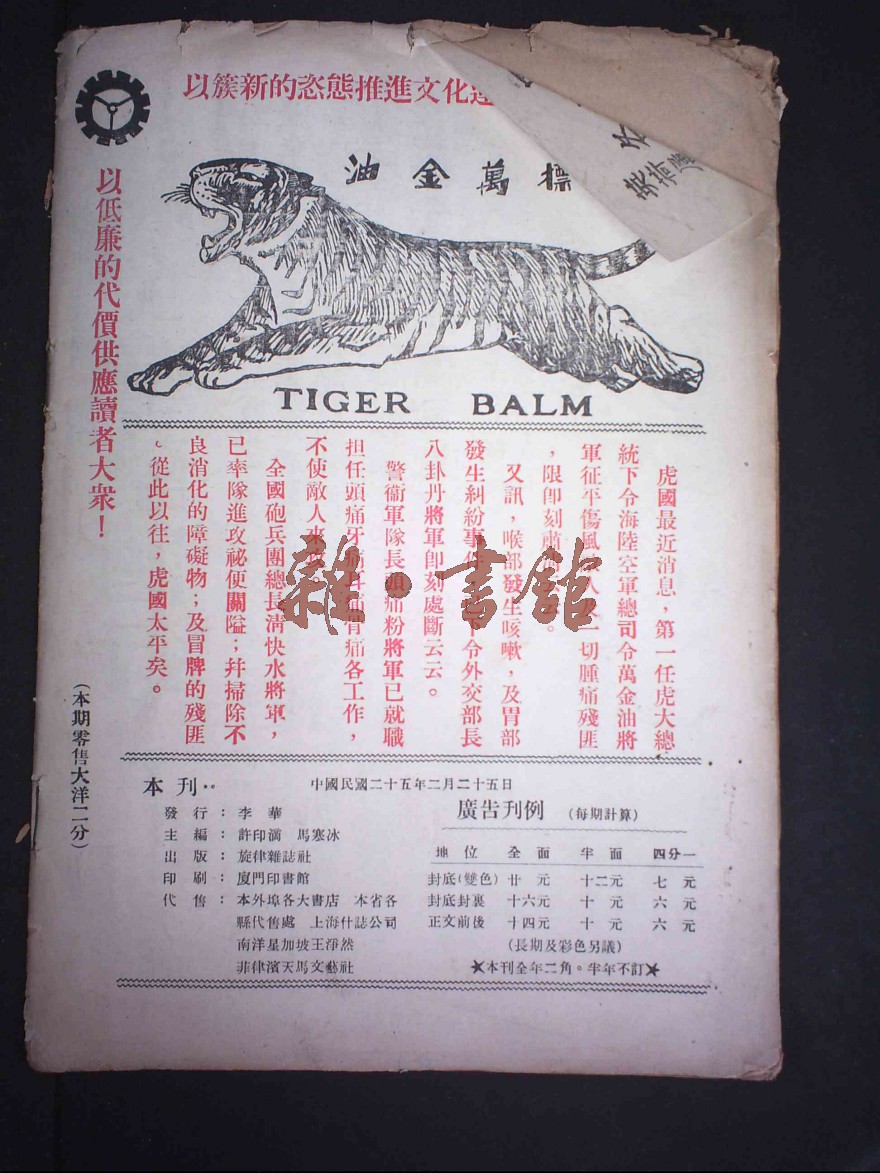 以簇新的恣態推進文化
以低廉的代價供應讀者大衆！
油金萬標
TIGER BALM
虎國最近消息，第一任虎大總
統下令海陸空軍總司令萬金油將
軍征平傷風 一切腫痛殘匪
，限卽刻
又訊，喉部發生咳嗽，及胃部
發生糾紛事 下令外交部長
八卦丹將軍卽刻處斷云云。
警衞軍隊長頭痛粉將軍已就職
担任頭痛牙痛 骨痛各工作，
不使敵人來
全國砲兵團總長淸快水將軍，
已率隊進攻祕便關隘；幷掃除不
良消化的障礙物；及冒牌的殘匪
，從此以往，虎國太平矣。
雜·書館
（本期零售大洋二分）
本刊：
發行：李華
主編：許印滴 馬寒冰
出版：旋律雜誌社
印刷：廈門印書館
代售：本外埠各大書店 本省各
縣代售處 上海什誌公司
南洋星加坡王淨然
菲律濱天馬文藝社
中國民國二十五年二月二十五日
廣告刋例 （每期計算）
地位 全面 半面 四分一
封底(雙色) 廿元 十二元 七元
封底封裏 十六元 十元 六元
正文前後 十四元 十元 六元
（長期及彩色另議）
★本刊全年二角。半年不訂★